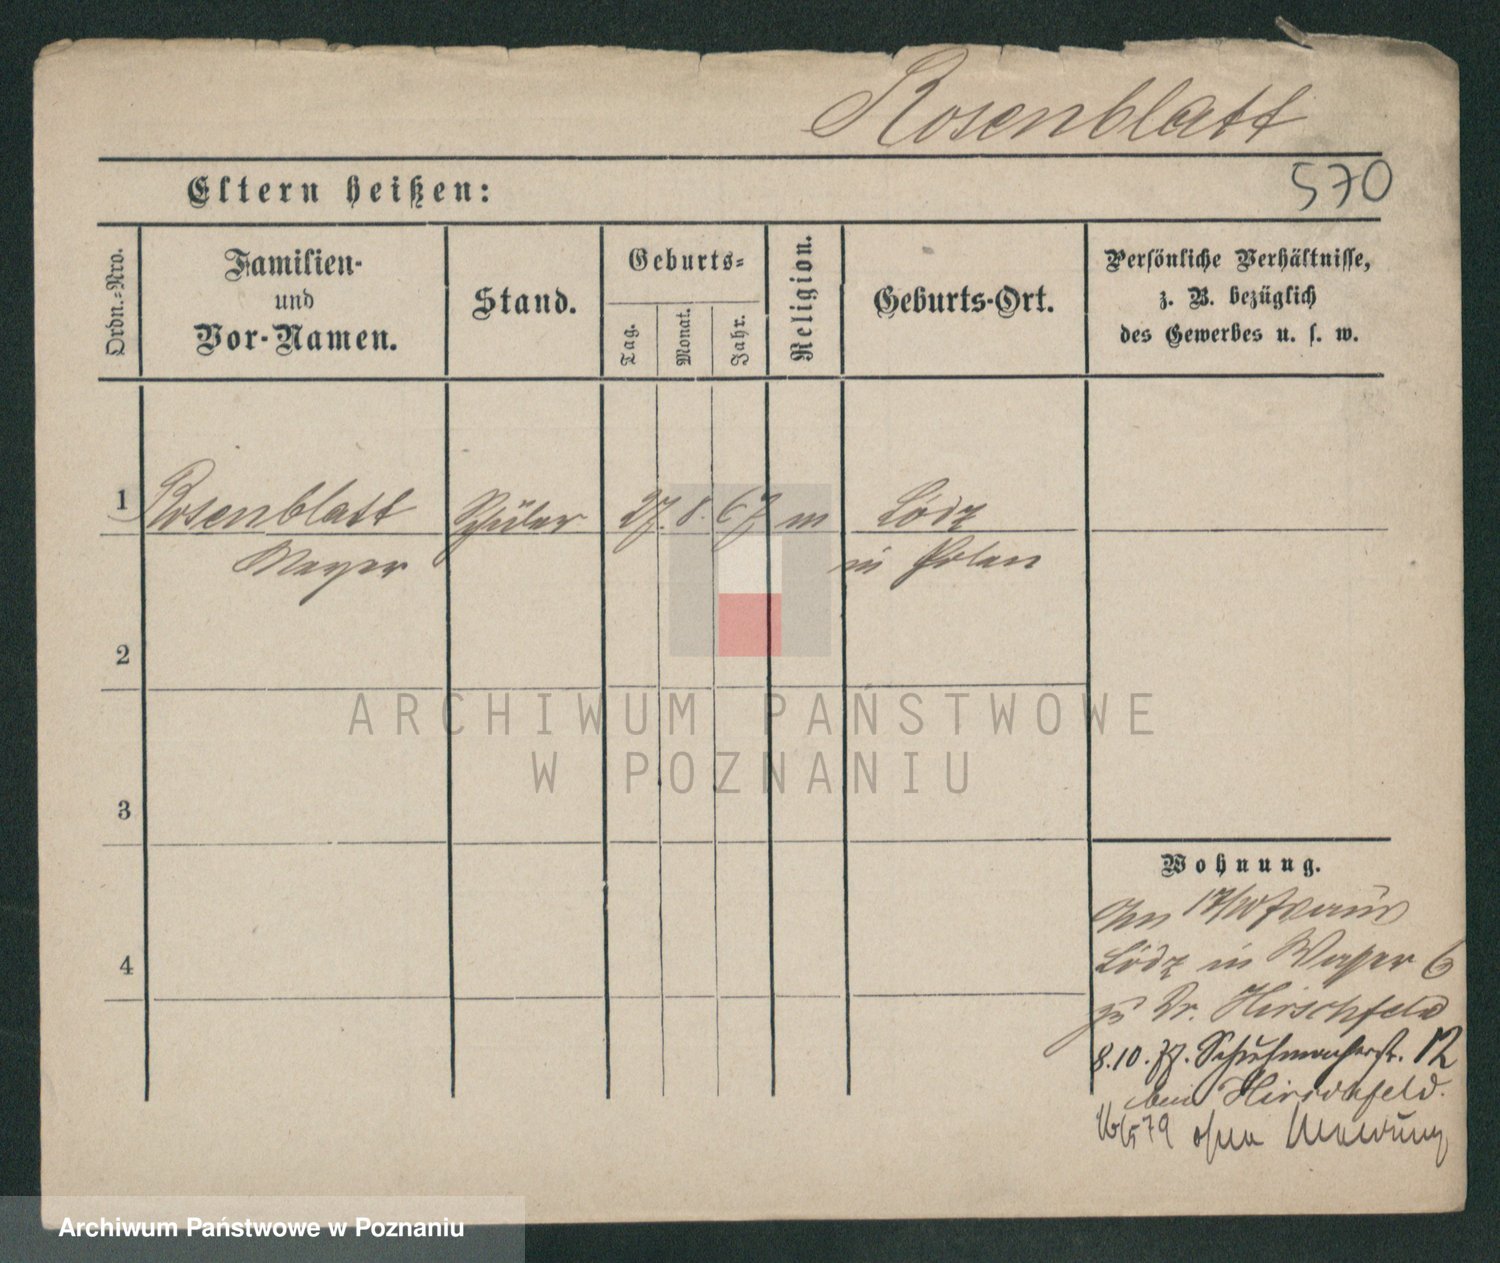 Rosenblatt
570
Eltern heißen:
Ordn.-Nro.
Familien-
und
Vor-Namen.
Stand.
Geburts-
Tag.
Monat.
Jahr.
Religion.
Geburts-Ort.
Persönliche Verhältnisse,
z. B. bezüglich
des Gewerbes u. s. w.
1 Rosenblatt Schüler 27. 8. 67 m Lódz
Mayer in Polen
2
ARCHIWUM PAŃSTWOWE
W POZNANIU
3
Wohnung.
17/10 aus
4
Lódz in 6
zu Dr. Hirschfeld
8.10.77. Schuhmacherstr. 12
bei Hirschfeld.
79 ohne Meldung
Archiwum Państwowe w Poznaniu